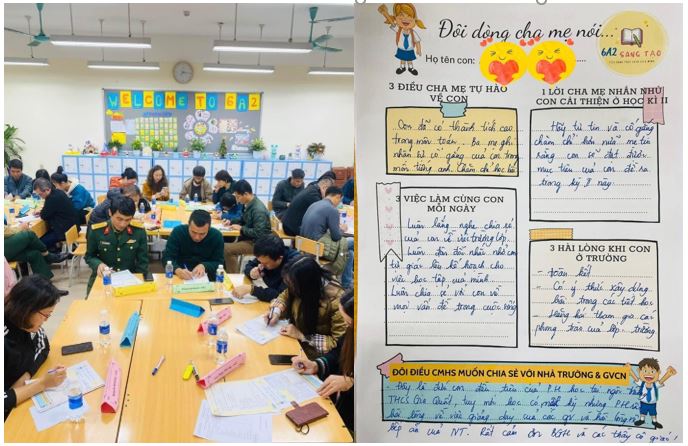 WELCOME TO 6A2
Đôi dòng cha mẹ nói...
6A2
SÁNG TẠO
Họ tên con:
3 ĐIỀU CHA MẸ TỰ HÀO
VỀ CON
Con đã có thành tích cao
trong môn toán. Ba mẹ ghi
nhận sự cố gắng của con trong
môn tiếng anh. Chăm chỉ học bài
1 LỜI CHA MẸ NHẮN NHỦ
CON CẢI THIỆN Ở HỌC KÌ II
Hãy tự tin và cố gắng
chăm chỉ hơn nữa mẹ tin
rằng con sẽ đạt được
mục tiêu của con đề ra
trong kỳ II này
3 VIỆC LÀM CÙNG CON
MỖI NGÀY
Luôn lắng nghe chia sẻ
của con về việc trường lớp
Luôn đôn đốc nhắc nhở con
tự giác lên kế hoạch cho
việc học tập của mình
Luôn chia sẻ với con về
mọi vấn đề trong cuộc sống
3 HÀI LÒNG KHI CON
Ở TRƯỜNG
- đoàn kết
- Có ý thức xây dựng
bài trong các tiết học
- Hăng hái tham gia các
phong trào của lớp, trường
ĐÔI ĐIỀU CMHS MUỐN CHIA SẺ VỚI NHÀ TRƯỜNG & GVCN
- Đây là đứa con đầu tiên của PH học tại ngôi
THCS Gia Quất, tuy mới học có một kỳ nhưng PH
hài lòng về việc giảng dạy của các GV và
bếp ăn của NT. Rất cảm ơn BGH và các thầy cô giáo!